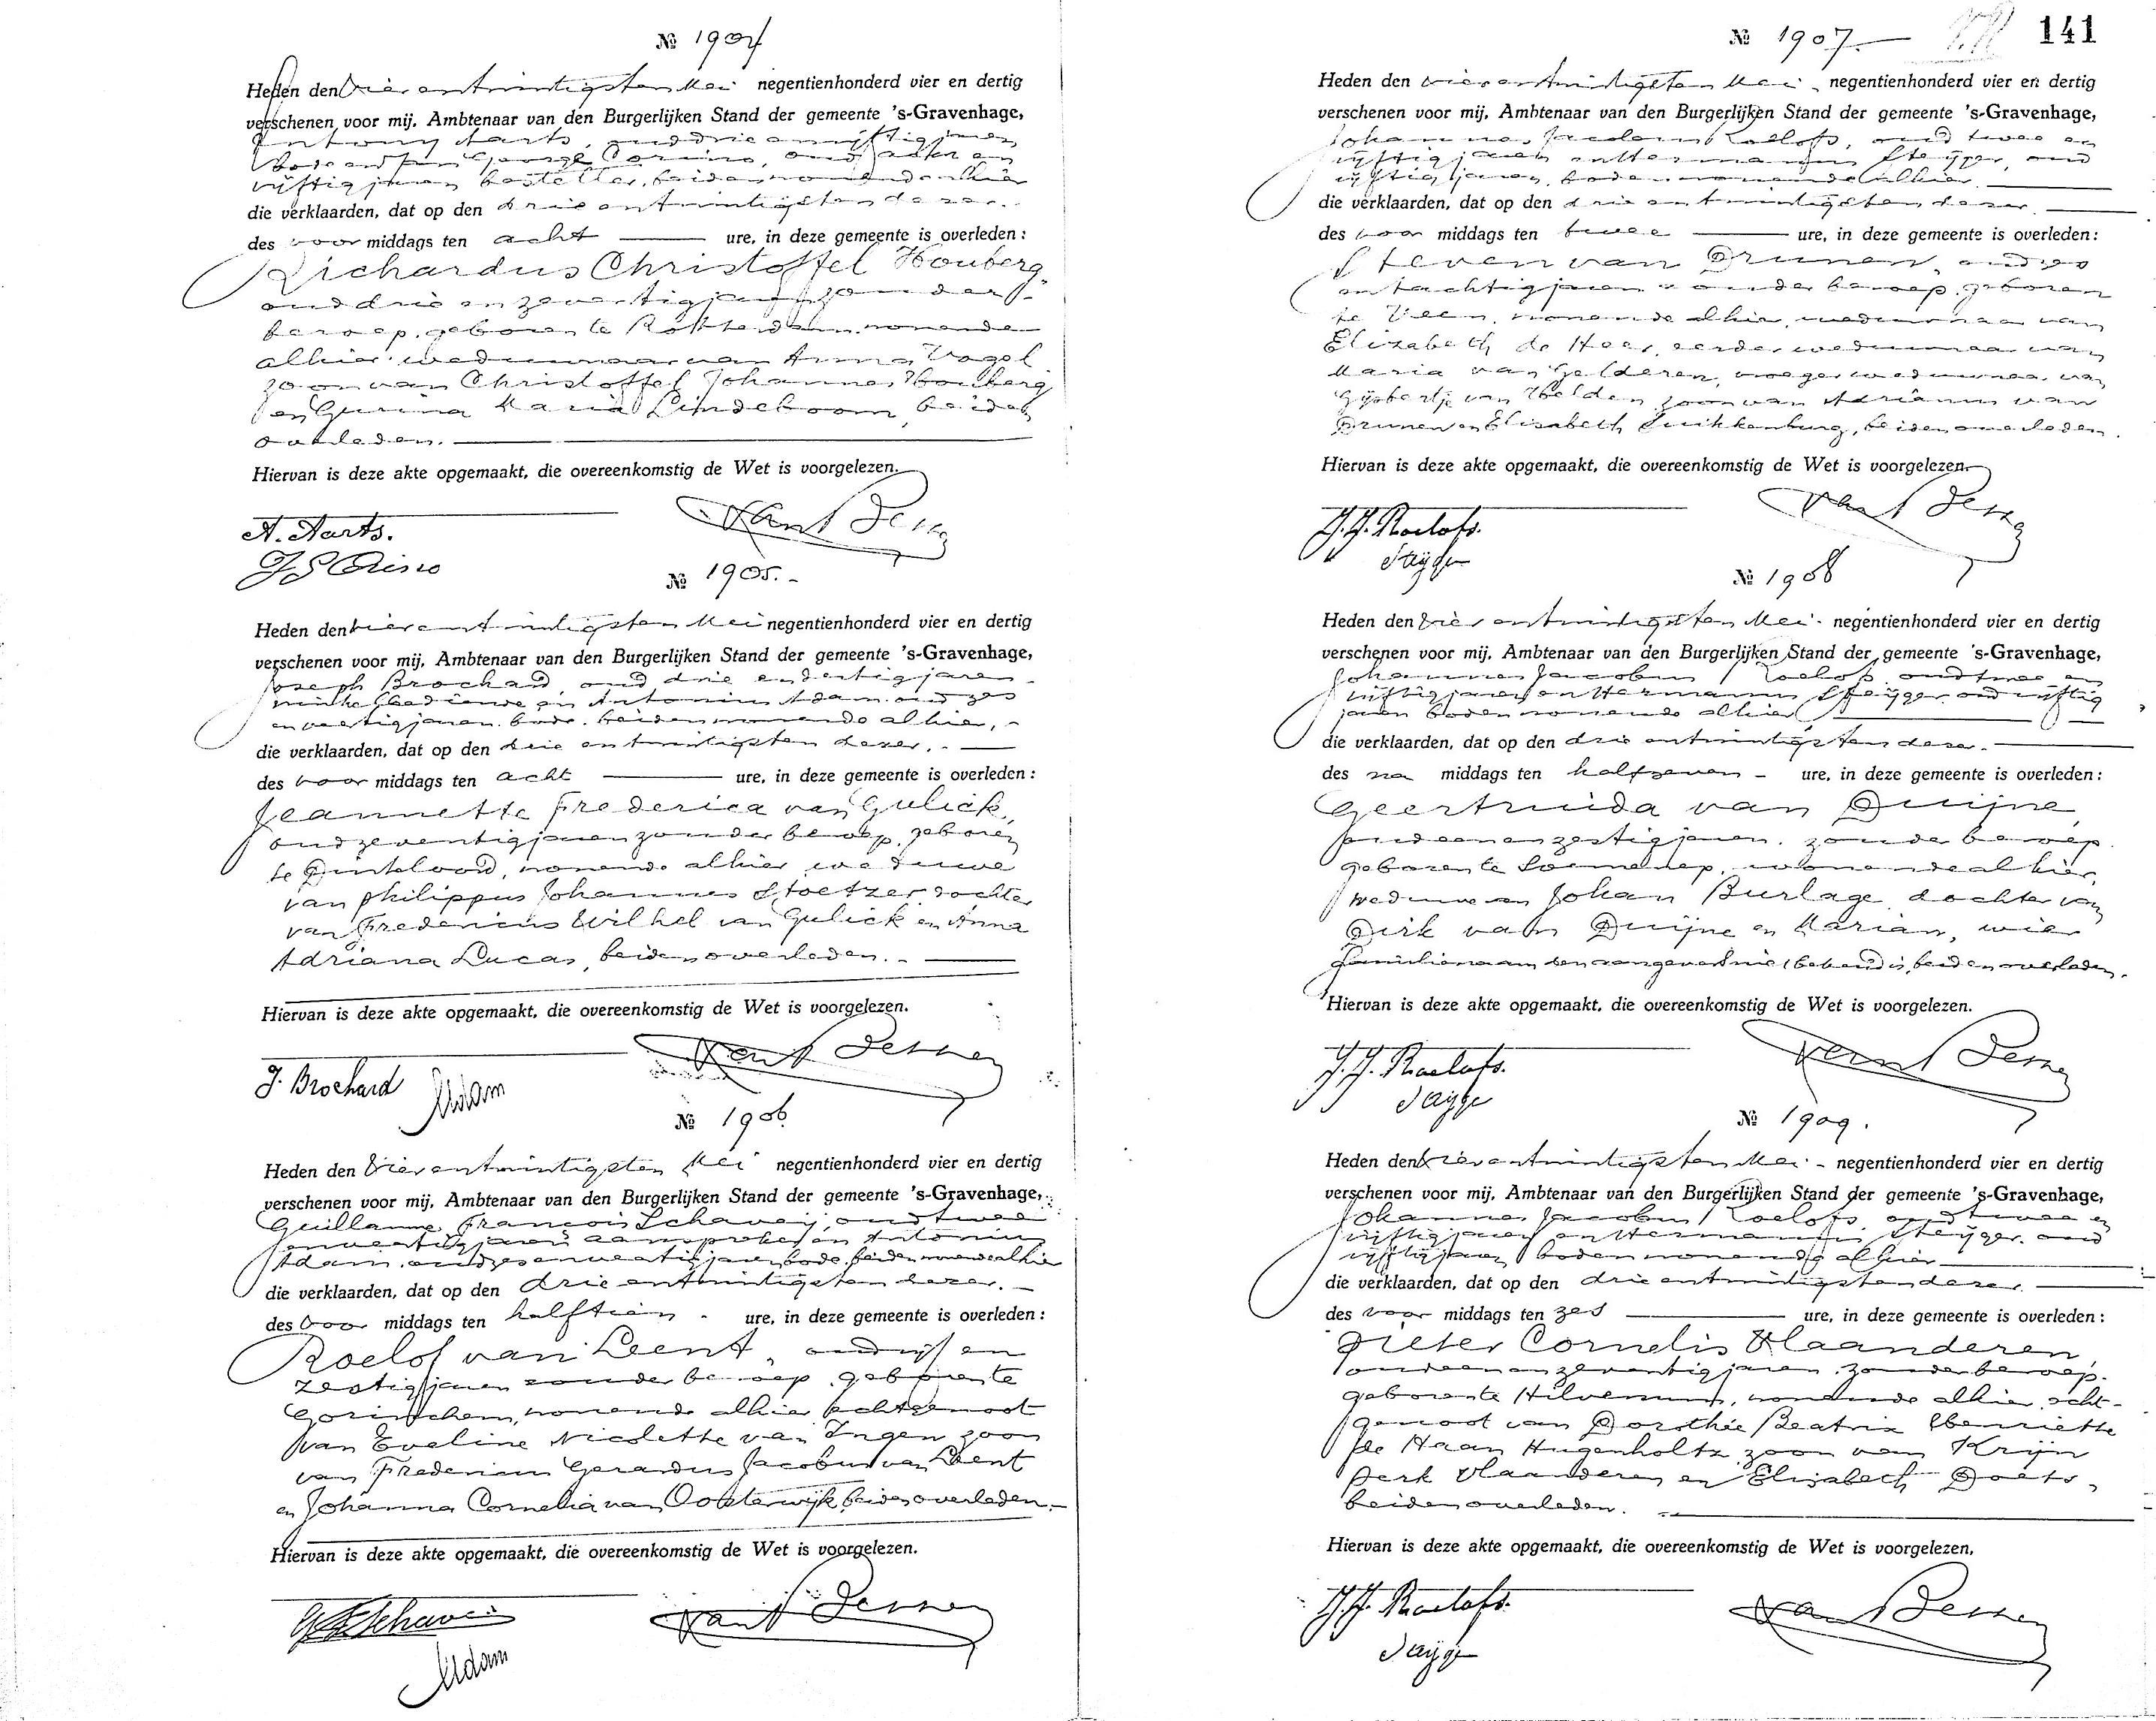 № 1904
Heden den vier en twintigsten Mei negentienhonderd vier en dertig
verschenen voor mij, Ambtenaar van den Burgerlijken Stand der gemeente 's-Gravenhage,
Antony Aarts, oud drie en vijftig jaren
bode en George Corino, oud acht en
vijftig jaren, besteller, beiden wonende alhier
die verklaarden, dat op den drie en twintigsten dezer.
des voor middags ten acht ure, in deze gemeente is overleden:
Richardus Christoffel Houberg,
oud drie en zeventig jaren, zonder
beroep, geboren te Rotterdam, wonende
alhier, weduwnaar van Anna Vogel
zoon van Christoffel Johannes Houberg
en Maria Lindeboom, beiden
overleden.
Hiervan is deze akte opgemaakt, die overeenkomstig de Wet is voorgelezen.
A. Aarts.
№ 1905.-
Heden den vier en twintigsten Mei negentienhonderd vier en dertig
verschenen voor mij, Ambtenaar van den Burgerlijken Stand der gemeente 's-Gravenhage,
Joseph Brochard, oud drie en dertig jaren
winkelbediende en Antonius Adam, oud zes
en veertig jaren, bode, beiden wonende alhier,
die verklaarden, dat op den drie en twintigsten dezer.
des voor middags ten acht ure, in deze gemeente is overleden:
Jeannette Frederica van Gulick,
oud zeventig jaren, zonder beroep, geboren
te Dinteloord, wonende alhier, weduwe
van Philippus Johannes Stoetzer, dochter
van Fredericus Wilhel van Gulick en Anna
Adriana Lucas, beiden overleden.
Hiervan is deze akte opgemaakt, die overeenkomstig de Wet is voorgelezen.
J. Brochard Adam
№ 1906.
Heden den vier en twintigsten Mei negentienhonderd vier en dertig
verschenen voor mij, Ambtenaar van den Burgerlijken Stand der gemeente 's-Gravenhage,
Guillaume Francois Schaveij, oud twee
en veertig jaren, aanspreker en Antonius
Adam, oud zes en veertig jaren, bode, beiden wonende alhier
die verklaarden, dat op den drie en twintigsten dezer.
des voor middags ten half tien ure, in deze gemeente is overleden:
Roelof van Leent, oud vijf en
zestig jaren, zonder beroep, geboren te
Gorinchem, wonende alhier, echtgenoot
van Eveline Nicolette van Ingen, zoon
van Fredericus Gerardus Jacobus van Leent
en Johanna Cornelia van Oosterwijk, beiden overleden.
Hiervan is deze akte opgemaakt, die overeenkomstig de Wet is voorgelezen.
Adam
141
№ 1907.
Heden den vier en twintigsten Mei negentienhonderd vier en dertig
verschenen voor mij, Ambtenaar van den Burgerlijken Stand der gemeente 's-Gravenhage,
Johannes Jacobus Roelofs, oud twee en
vijftig jaren en Hermanus Steijger, oud
vijftig jaren, boden, wonende alhier
die verklaarden, dat op den drie en twintigsten dezer.
des voor middags ten twee ure, in deze gemeente is overleden:
Steven van Drunen, oud zes
en tachtig jaren, zonder beroep, geboren
te Veen, wonende alhier, weduwnaar van
Elizabeth de Heer, eerder weduwnaar van
Maria van Gelderen, vroeger weduwnaar van
Gijsbertje van Helden, zoon van Adrianus van
Drunen en Elisabeth, beiden overleden.
Hiervan is deze akte opgemaakt, die overeenkomstig de Wet is voorgelezen.
J.J. Roelofs.
Steijger
№ 1908
Heden den vier en twintigsten Mei negentienhonderd vier en dertig
verschenen voor mij, Ambtenaar van den Burgerlijken Stand der gemeente 's-Gravenhage,
Johannes Jacobus Roelofs, oud twee en
vijftig jaren en Hermanus Steijger, oud vijftig
jaren, boden, wonende alhier
die verklaarden, dat op den drie en twintigsten dezer.
des na middags ten half zeven ure, in deze gemeente is overleden:
Geertruida van Duijne,
oud een en zestig jaren, zonder beroep,
geboren te, wonende alhier,
weduwe van Johan Burlage, dochter van
Dirk van Duijne en Marian, wier
familienaam den aangevers niet bekend is, beiden overleden.
Hiervan is deze akte opgemaakt, die overeenkomstig de Wet is voorgelezen.
J.J. Roelofs.
Steijger
№ 1909.
Heden den vier en twintigsten Mei negentienhonderd vier en dertig
verschenen voor mij, Ambtenaar van den Burgerlijken Stand der gemeente 's-Gravenhage,
Johannes Jacobus Roelofs, oud twee en
vijftig jaren en Hermanus Steijger, oud
vijftig jaren, boden, wonende alhier
die verklaarden, dat op den drie en twintigsten dezer.
des voor middags ten zes ure, in deze gemeente is overleden:
Pieter Cornelis Vlaanderen,
oud een en zeventig jaren, zonder beroep,
geboren te Hilversum, wonende alhier, echt-
genoot van Dorothée Beatrix Henriette
de Haan Hugenholtz, zoon van Krijn
Derk Vlaanderen en Elisabeth Doets,
beiden overleden.
Hiervan is deze akte opgemaakt, die overeenkomstig de Wet is voorgelezen.
J.J. Roelofs.
Steijger